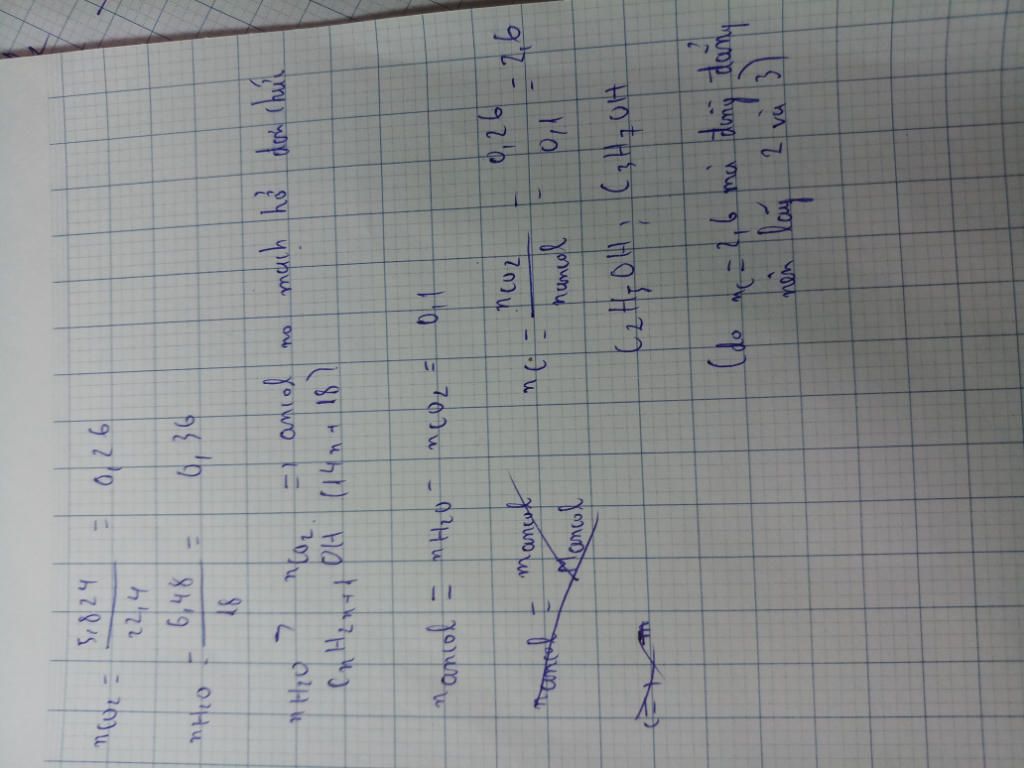 nCO2 = 5,824 / 22,4 = 0,26
nH2O = 6,48 / 18 = 0,36
nH2O > nCO2. => ancol no mạch hở đơn chức
CnH2n+1OH (14n + 18)
nancol = nH2O - nCO2 = 0,1
nancol = mancol / Mancol
nC = nCO2 / nancol = 0,26 / 0,1 = 2,6
C2H5OH, C3H7OH
(do nC = 2,6 mà đồng đẳng
nên lấy 2 và 3)